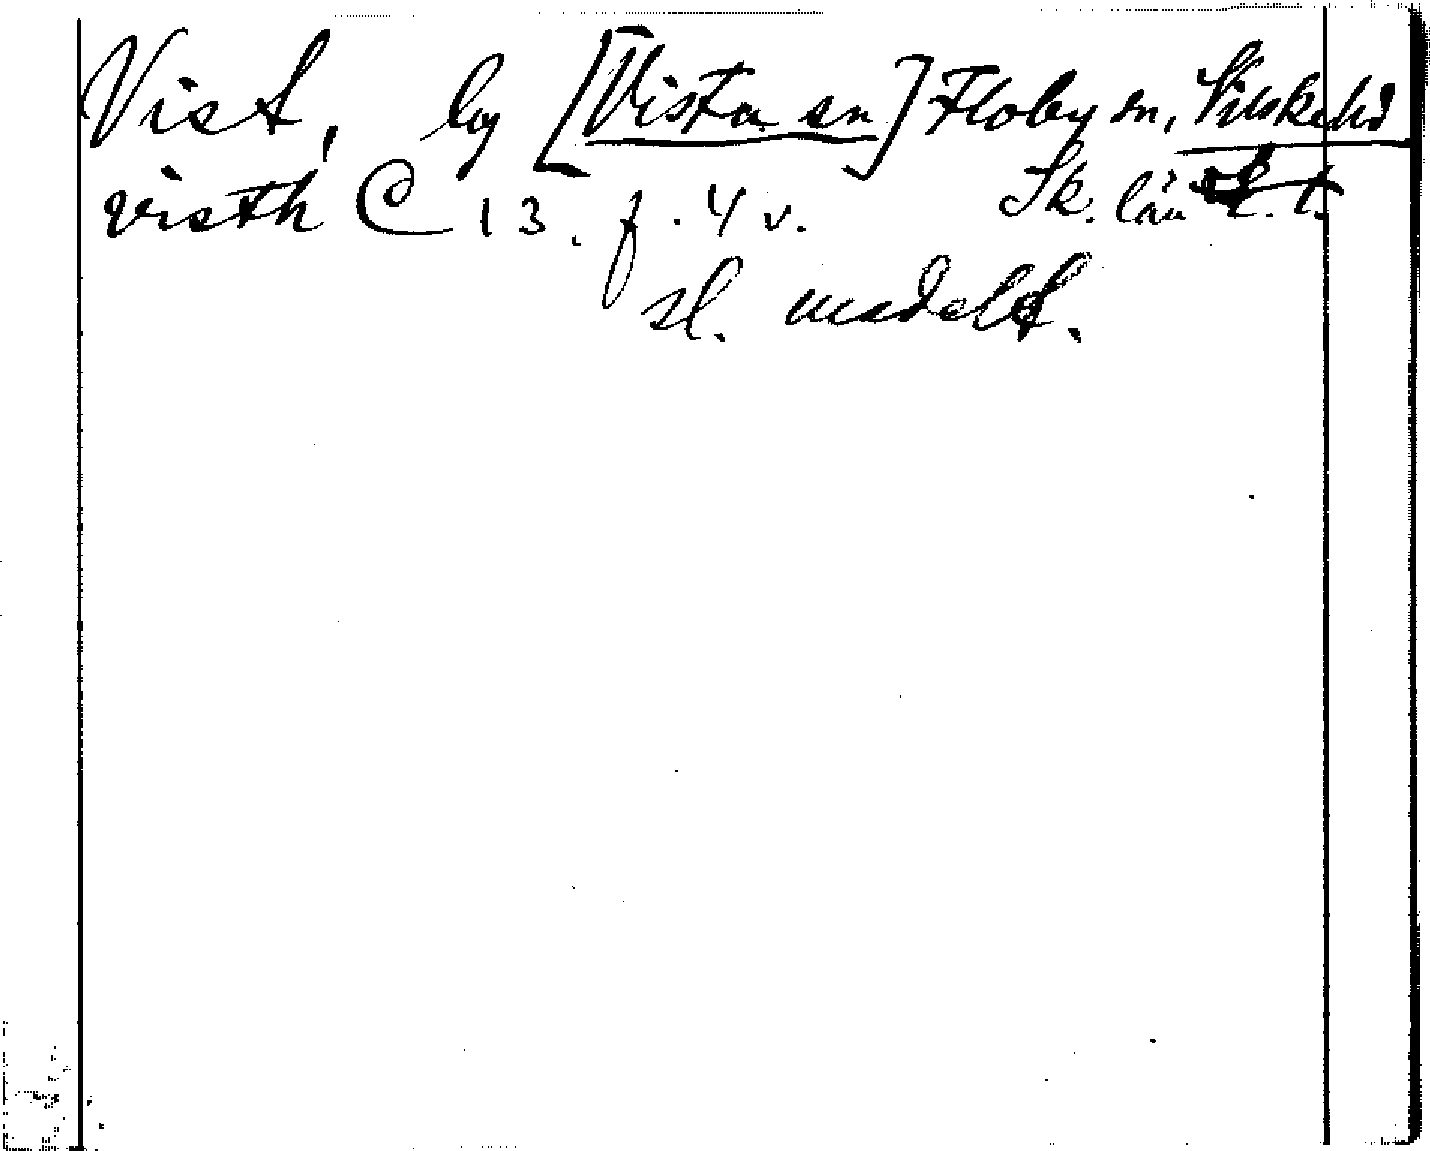 Vist, by [Vista sn] Floby sn, Vilske hd
visth C 13. f. 4 v. Sk. län
sl. medelt.